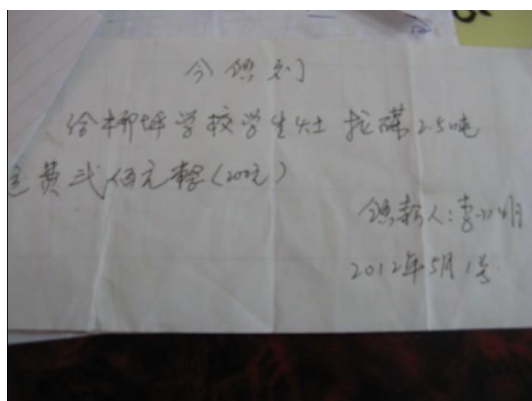 今领到
给柳坪学校学生灶拉碟2.50吨
运费弍佰元整(200元)
领款人:李
2012年5月1号